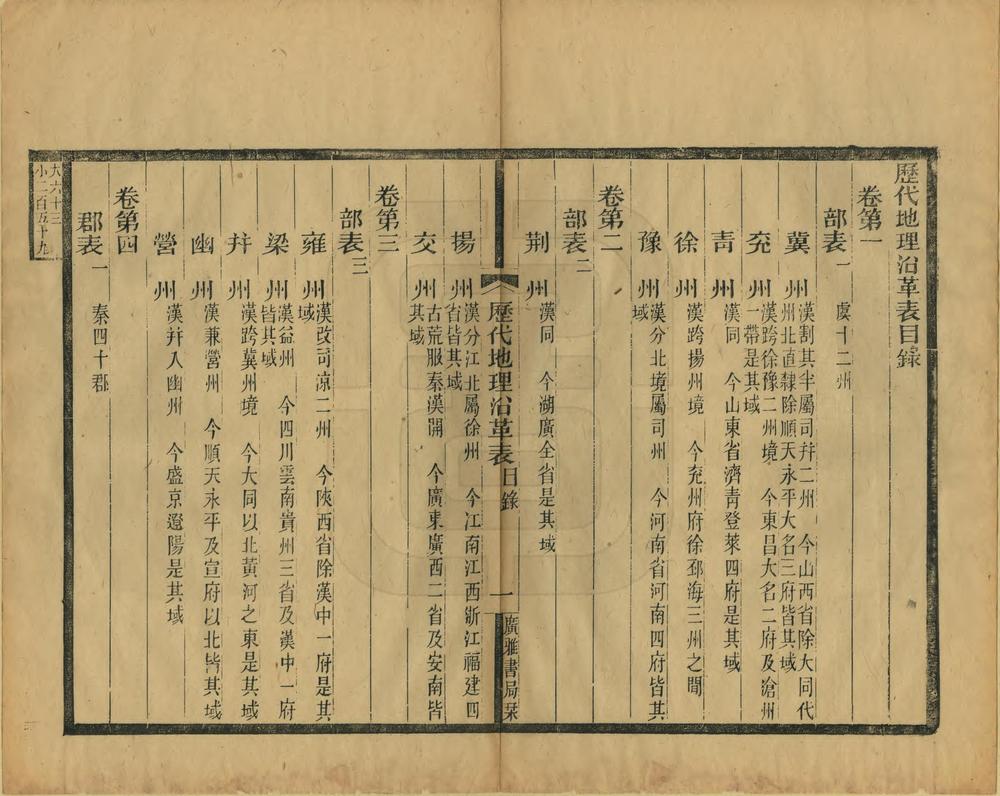 歷代地理沿革表目錄
卷第一
部表一　虞十二州
冀州漢割其半屬司幷二州　今山西省除大同代
州北直隸除順天永平大名三府皆其域
兖州漢跨徐豫二州境　今東昌大名二府及滄州
一帶是其域
靑州漢同　今山東省濟靑登萊四府是其域
徐州漢跨揚州境　今兖州府徐邳海三州之間
豫州漢分北境屬司州　今河南省河南四府皆其
域
卷第二
部表二
荆州漢同　今湖廣全省是其域
歷代地理沿革表目錄　一　廣雅書局栞
揚州漢分江北屬徐州　今江南江西浙江福建四
省皆其域
交州古荒服秦漢開　今廣東廣西二省及安南皆
其域
卷第三
部表三
雍州漢改司凉二州　今陝西省除漢中一府是其
域
梁州漢益州　今四川雲南貴州三省及漢中一府
皆其域
幷州漢跨冀州境　今大同以北黃河之東是其域
幽州漢兼營州　今順天永平及宣府以北皆其域
營州漢幷入幽州　今盛京遼陽是其域
卷第四
郡表一　秦四十郡
大六十三
小二百五十九